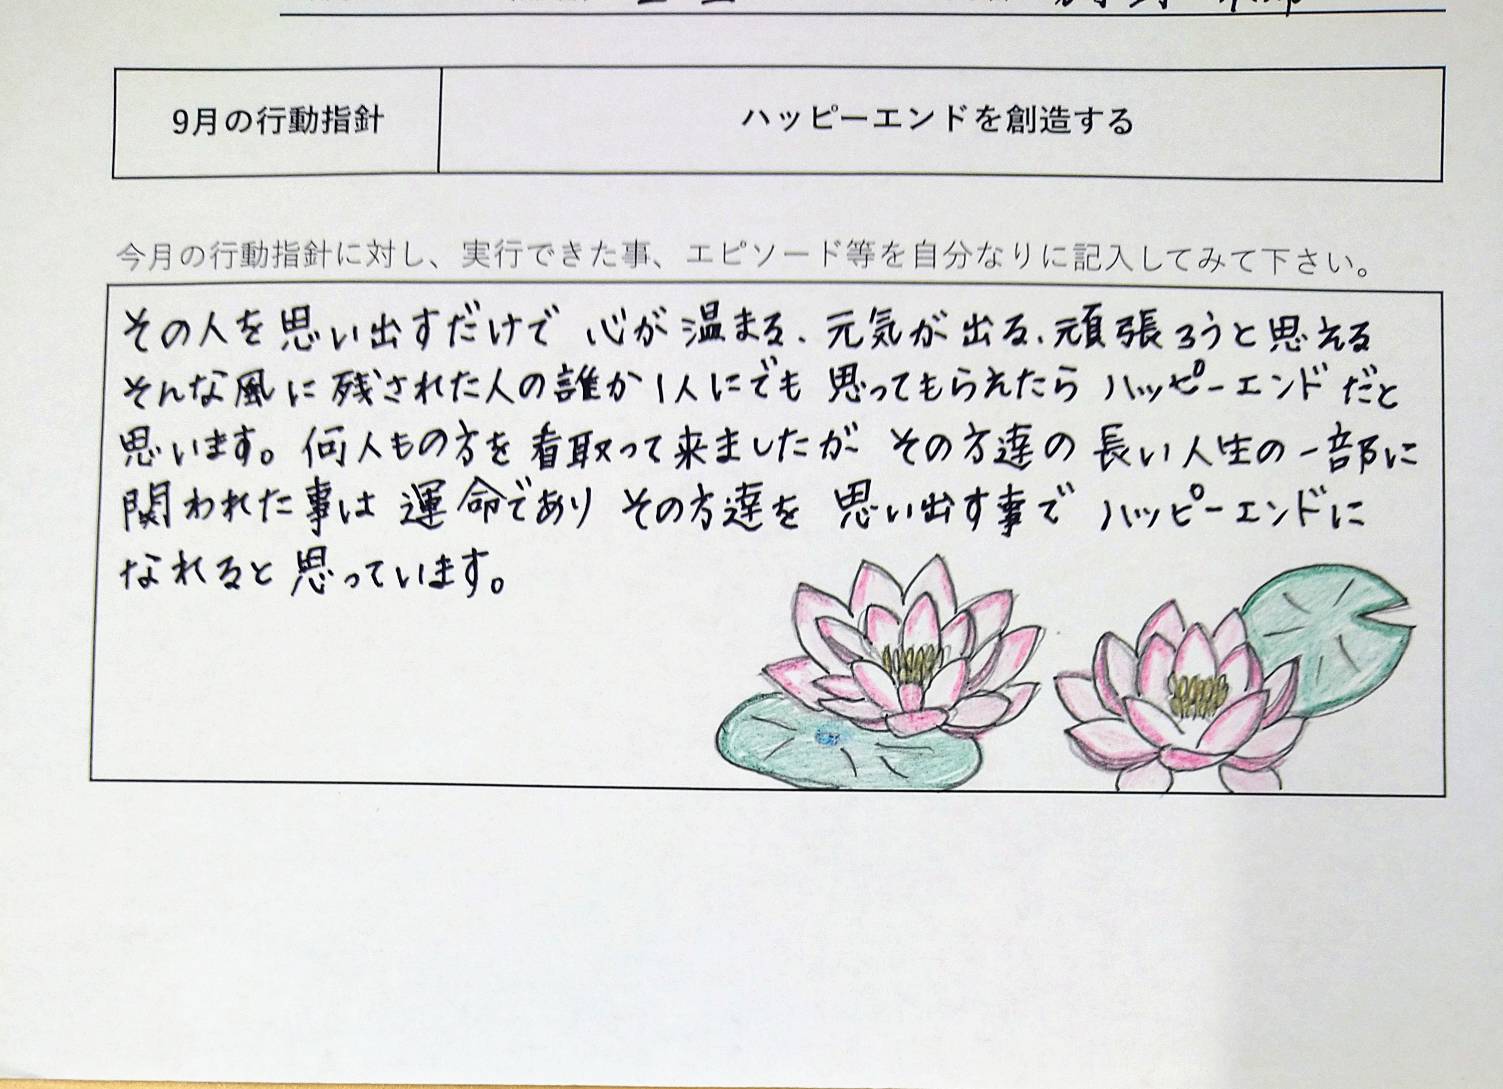 9月の行動指針
ハッピーエンドを創造する
今月の行動指針に対し、実行できた事、エピソード等を自分なりに記入してみて下さい。
その人を思い出すだけで 心が温まる、元気が出る、頑張ろうと思える
そんな風に残された人の誰か1人にでも思ってもらえたら ハッピーエンドだと
思います。何人もの方を看取って来ましたが その方達の長い人生の一部に
関われた事は運命であり その方達を思い出す事で ハッピーエンドに
なれると思っています。